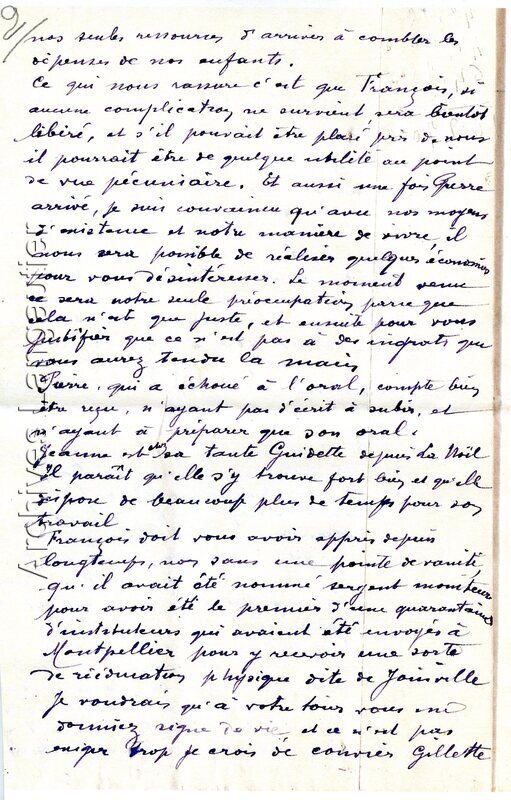 2/
nos seules ressources d'arriver à combler les
dépenses de nos enfants.
Ce qui nous rassure c'est que François, si
aucune complication ne survient sera bientôt
libéré, et s'il pouvait être placé près de nous
il pourrait être de quelque utilité au point
de vue pécuniaire. Et aussi une fois Pierre
arrivé, je suis convaincu qu'avec nos moyens
d'existence et notre manière de vivre, il
nous sera possible de réaliser quelques économies
pour vous désintéresser. Le moment venu
ce sera notre seule préoccupation parce que
cela n'est que juste, et ensuite pour vous
justifier que ce n'est pas à des ingrats que
vous aurez tendu la main
Pierre qui a échoué à l'oral, compte bien
être reçu, n'ayant pas d'écrit à subir, et
n'ayant à préparer que son oral.
Jeanne est chez sa tante Guidette depuis La Noël
Il paraît qu'elle s'y trouve fort bien et qu'elle
dispose de beaucoup plus de temps pour son
travail
François doit vous avoir appris depuis
longtemps, non sans une pointe de vanité,
qu'il avait été nommé sergent moniteur
pour avoir été le premier d'une quarantaine
d'instituteurs qui avaient été envoyés à
Montpellier pour y recevoir une sorte
de rééducation physique dite de Joinville
Je voudrais qu'à votre tour vous me
donniez signe de vie et ce n'est pas
exiger trop je crois de convier Gillette
Archives